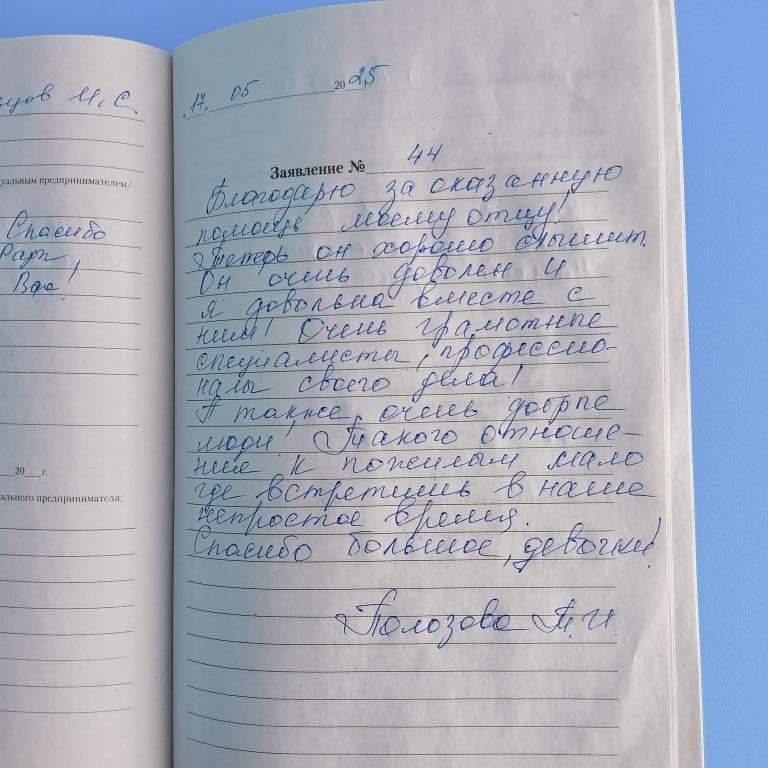 цов И.С.
уальным предпринимателем/
Спасибо
Вас!
20 г.
ального предпринимателя:
17. 05 2025
Заявление № 44
Благодарю за оказанную
помощь моему отцу!
Теперь он хорошо слышит.
Он очень доволен и
я довольна вместе с
ним! Очень грамотные
специалисты, профессио-
налы своего дела!
А также, очень добрые
люди! Такого отноше-
ние к пожилым мало
где встретишь в наше
непростое время.
Спасибо большое, девочки!
Полозова Т.И.